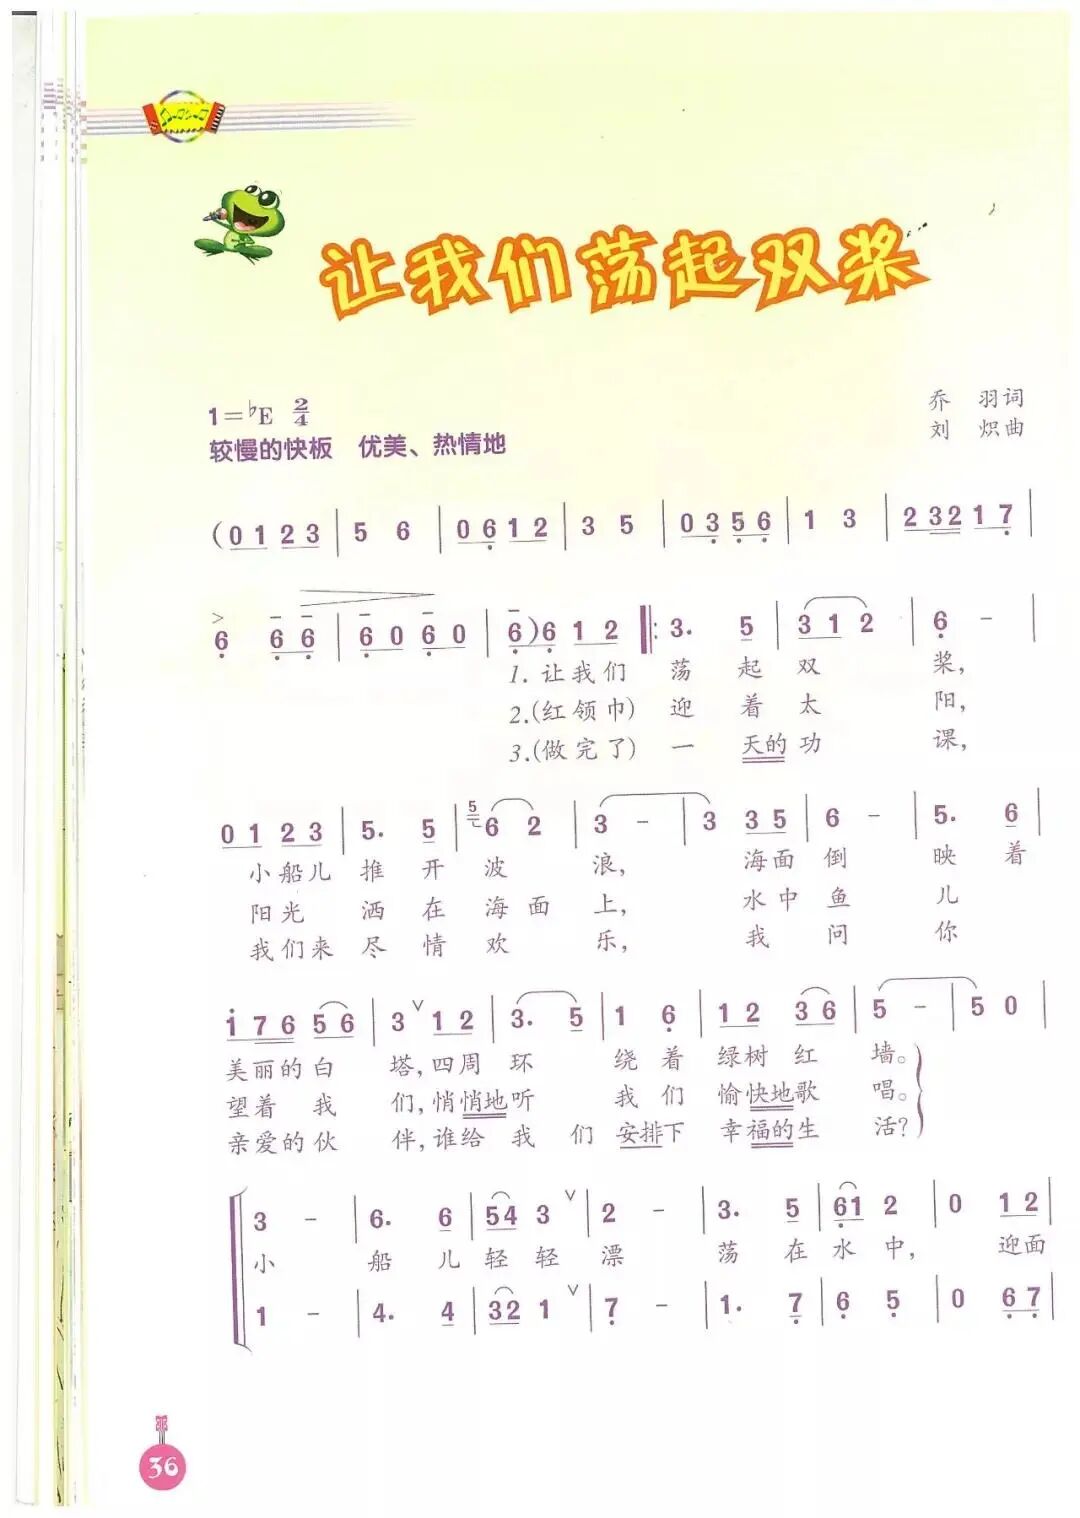 让我们荡起双桨
1=♭E 2/4
乔 羽词
较慢的快板 优美、热情地
刘 炽曲
(0 1 2 3 | 5 6 | 0 6̣ 1 2 | 3 5 | 0 3̣ 5̣ 6̣ | 1 3 | 2 3 2 1 7̣ |
6̣ 6̣ 6̣ | 6̣ 0 6̣ 0 | 6̣) 6̣ 1 2 ‖: 3. 5 | 3 1 2 | 6̣ - |
1. 让我们 荡 起 双 桨,
2.(红领巾) 迎 着 太 阳,
3.(做完了) 一 天的 功 课,
0 1 2 3 | 5. 5 | 5 6 2 | 3 - | 3 3 5 | 6 - | 5. 6 |
小船儿 推 开 波 浪, 海面 倒 映 着
阳光 洒 在 海 面 上, 水中 鱼 儿
我们来 尽 情 欢 乐, 我 问 你
1̇ 7 6 5 6 | 3 ∨ 1 2 | 3. 5̣ | 1 6̣ | 1 2 3 6 | 5 - | 5 0 |
美丽的白 塔,四周 环 绕 着 绿树 红 墙。
望着 我 们,悄悄地听 我 们 愉快地歌 唱。
亲爱的伙 伴,谁给 我 们 安排下 幸福的生 活?
3 - | 6. 6 | 5 4 3 ∨ | 2 - | 3. 5 | 6̣ 1 2 | 0 1 2 |
小 船 儿 轻 轻 漂 荡 在 水 中, 迎面
1 - | 4. 4 | 3 2 1 ∨ | 7̣ - | 1. 7̣ | 6̣ 5̣ | 0 6̣ 7̣ |
36